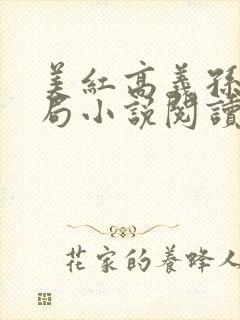 美红高義孫
局小說閱讀
花家的養蜂人